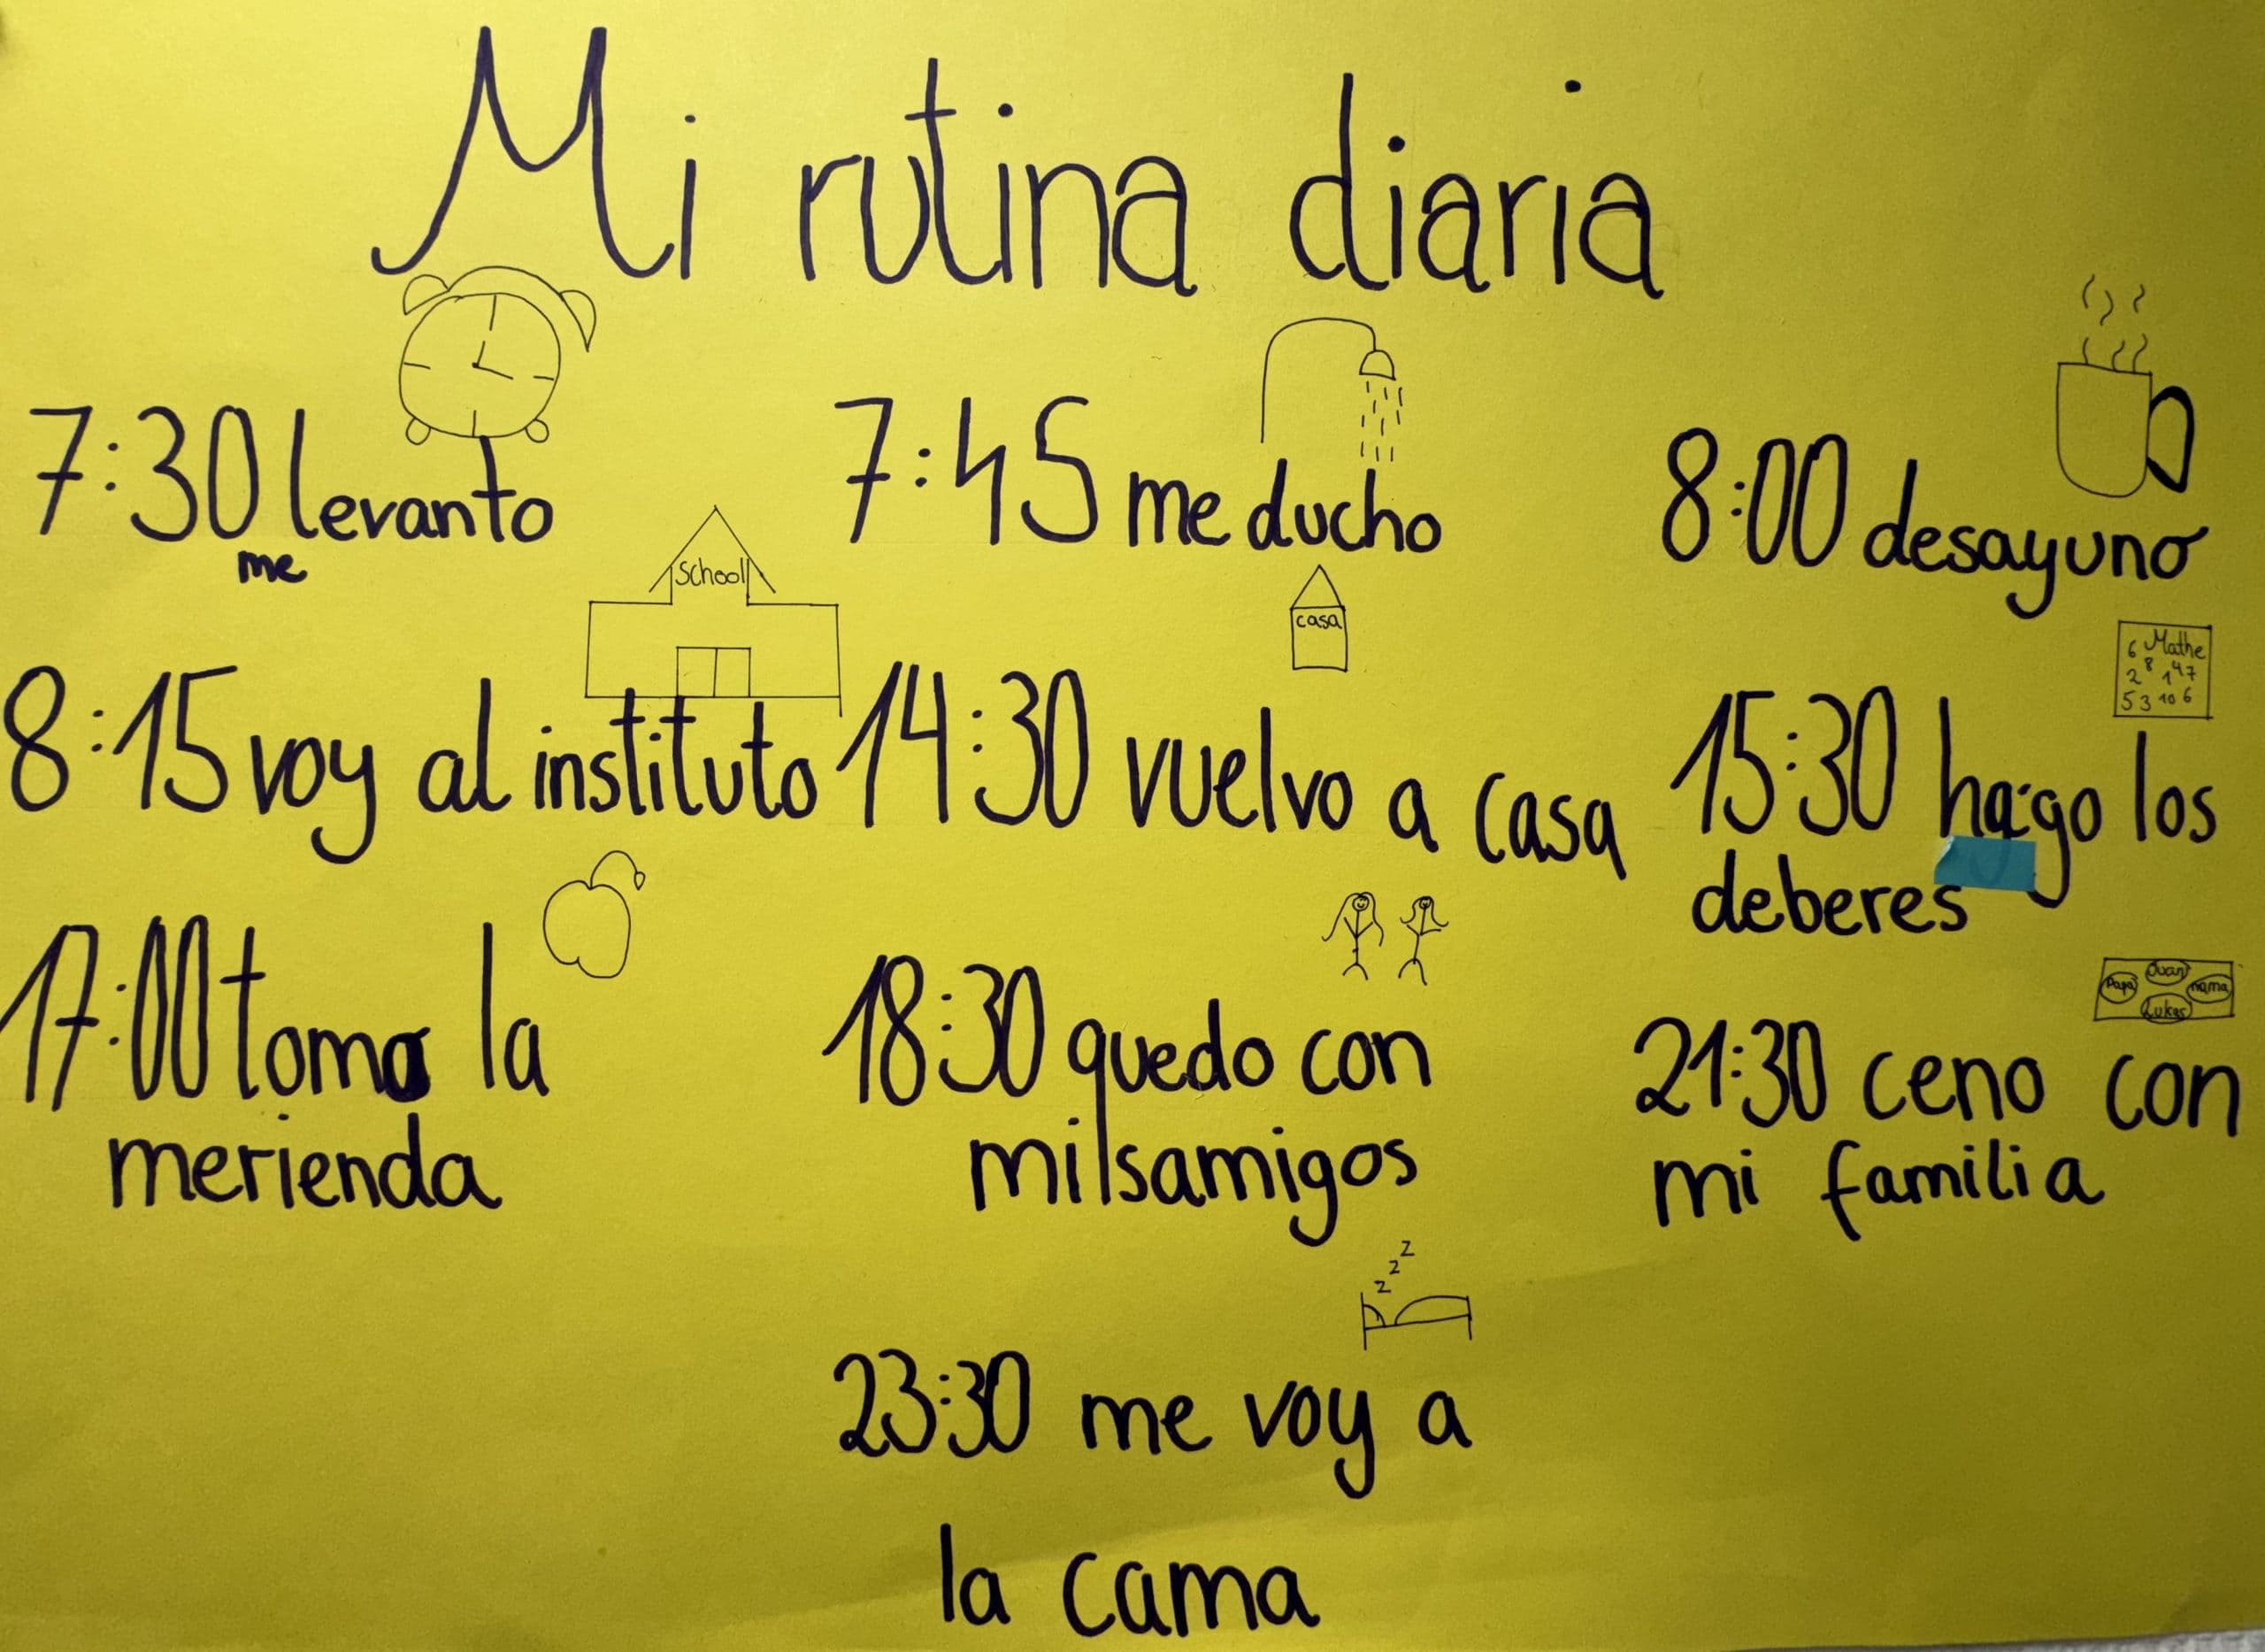 Mi rutina diaria
7:30 levanto
me
7:45 me ducho
8:00 desayuno
School
8:15 voy al instituto
casa
14:30 vuelvo a casa
Mathe
6 8 47
2 1
5 3 10 6
15:30 hago los
deberes
17:00 tomo la
merienda
18:30 quedo con
mis amigos
Juan
Papa
mama
Lukas
21:30 ceno con
mi familia
z z z
23:30 me voy a
la cama